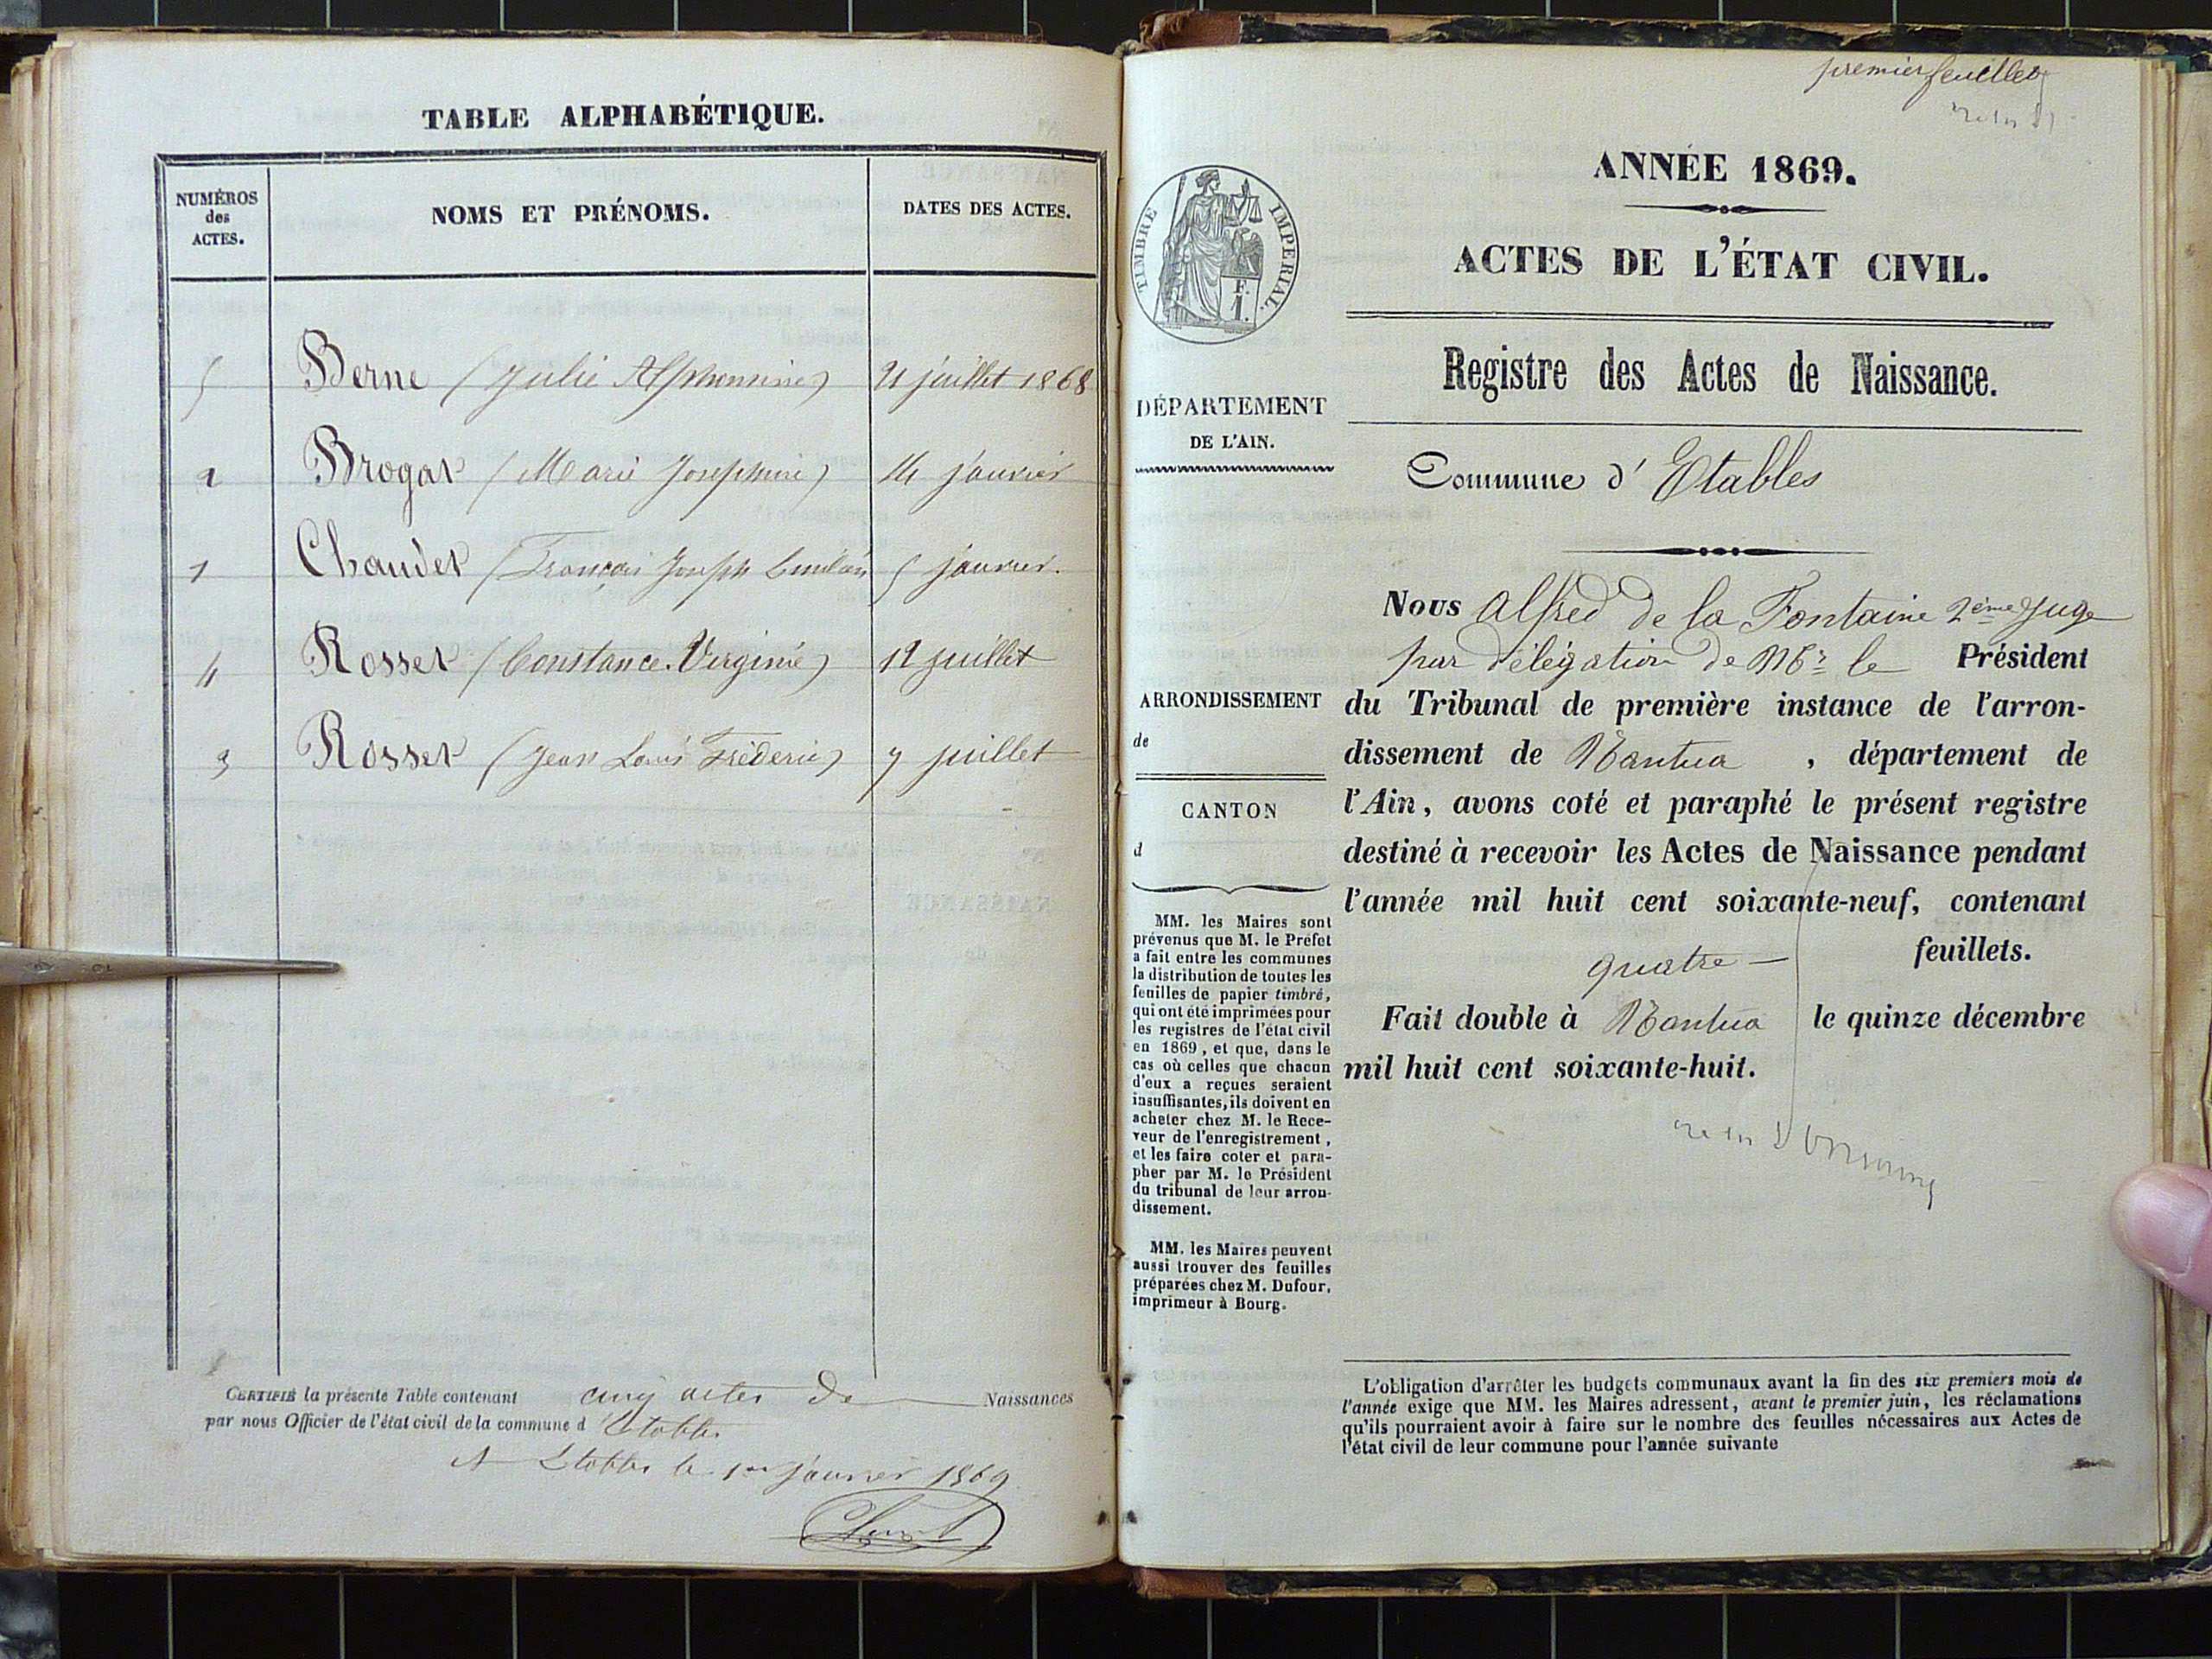 TABLE ALPHABÉTIQUE.
NUMÉROS des ACTES.
NOMS ET PRÉNOMS.
DATES DES ACTES.
5 Berne (Julie Alphonsine) 21 juillet 1868
2 Brogat (Marie Josephine) 14 janvier
1 Chaudet (François Joseph 5 janvier.
4 Rosset (Constance Virginie) 12 juillet
3 Rosset (Jean Louis Frédéric) 7 juillet
CERTIFIÉ la présente Table contenant cinq actes de Naissances
par nous Officier de l'état civil de la commune d Etables
A Etables le 1er janvier 1869
premier feuillet
ANNÉE 1869.
ACTES DE L'ÉTAT CIVIL.
TIMBRE IMPERIAL.
F.
1.
Registre des Actes de Naissance.
DÉPARTEMENT
DE L'AIN.
Commune d'Etables
Nous Alfred de la Fontaine 2ème Juge
par délégation de Mr le Président
du Tribunal de première instance de l'arron-
dissement de Nantua, département de
l'Ain, avons coté et paraphé le présent registre
destiné à recevoir les Actes de Naissance pendant
l'année mil huit cent soixante-neuf, contenant
quatre feuillets.
Fait double à Nantua le quinze décembre
mil huit cent soixante-huit.
ARRONDISSEMENT
de
CANTON
d
MM. les Maires sont
prévenus que M. le Préfet
a fait entre les communes
la distribution de toutes les
feuilles de papier timbré,
qui ont été imprimées pour
les registres de l'état civil
en 1869, et que, dans le
cas où celles que chacun
d'eux a reçues seraient
insuffisantes, ils doivent en
acheter chez M. le Rece-
veur de l'enregistrement,
et les faire coter et para-
pher par M. le Président
du tribunal de leur arron-
dissement.
MM. les Maires peuvent
aussi trouver des feuilles
préparées chez M. Dufour,
imprimeur à Bourg.
L'obligation d'arrêter les budgets communaux avant la fin des six premiers mois de
l'année exige que MM. les Maires adressent, avant le premier juin, les réclamations
qu'ils pourraient avoir à faire sur le nombre des feuilles nécessaires aux Actes de
l'état civil de leur commune pour l'année suivante